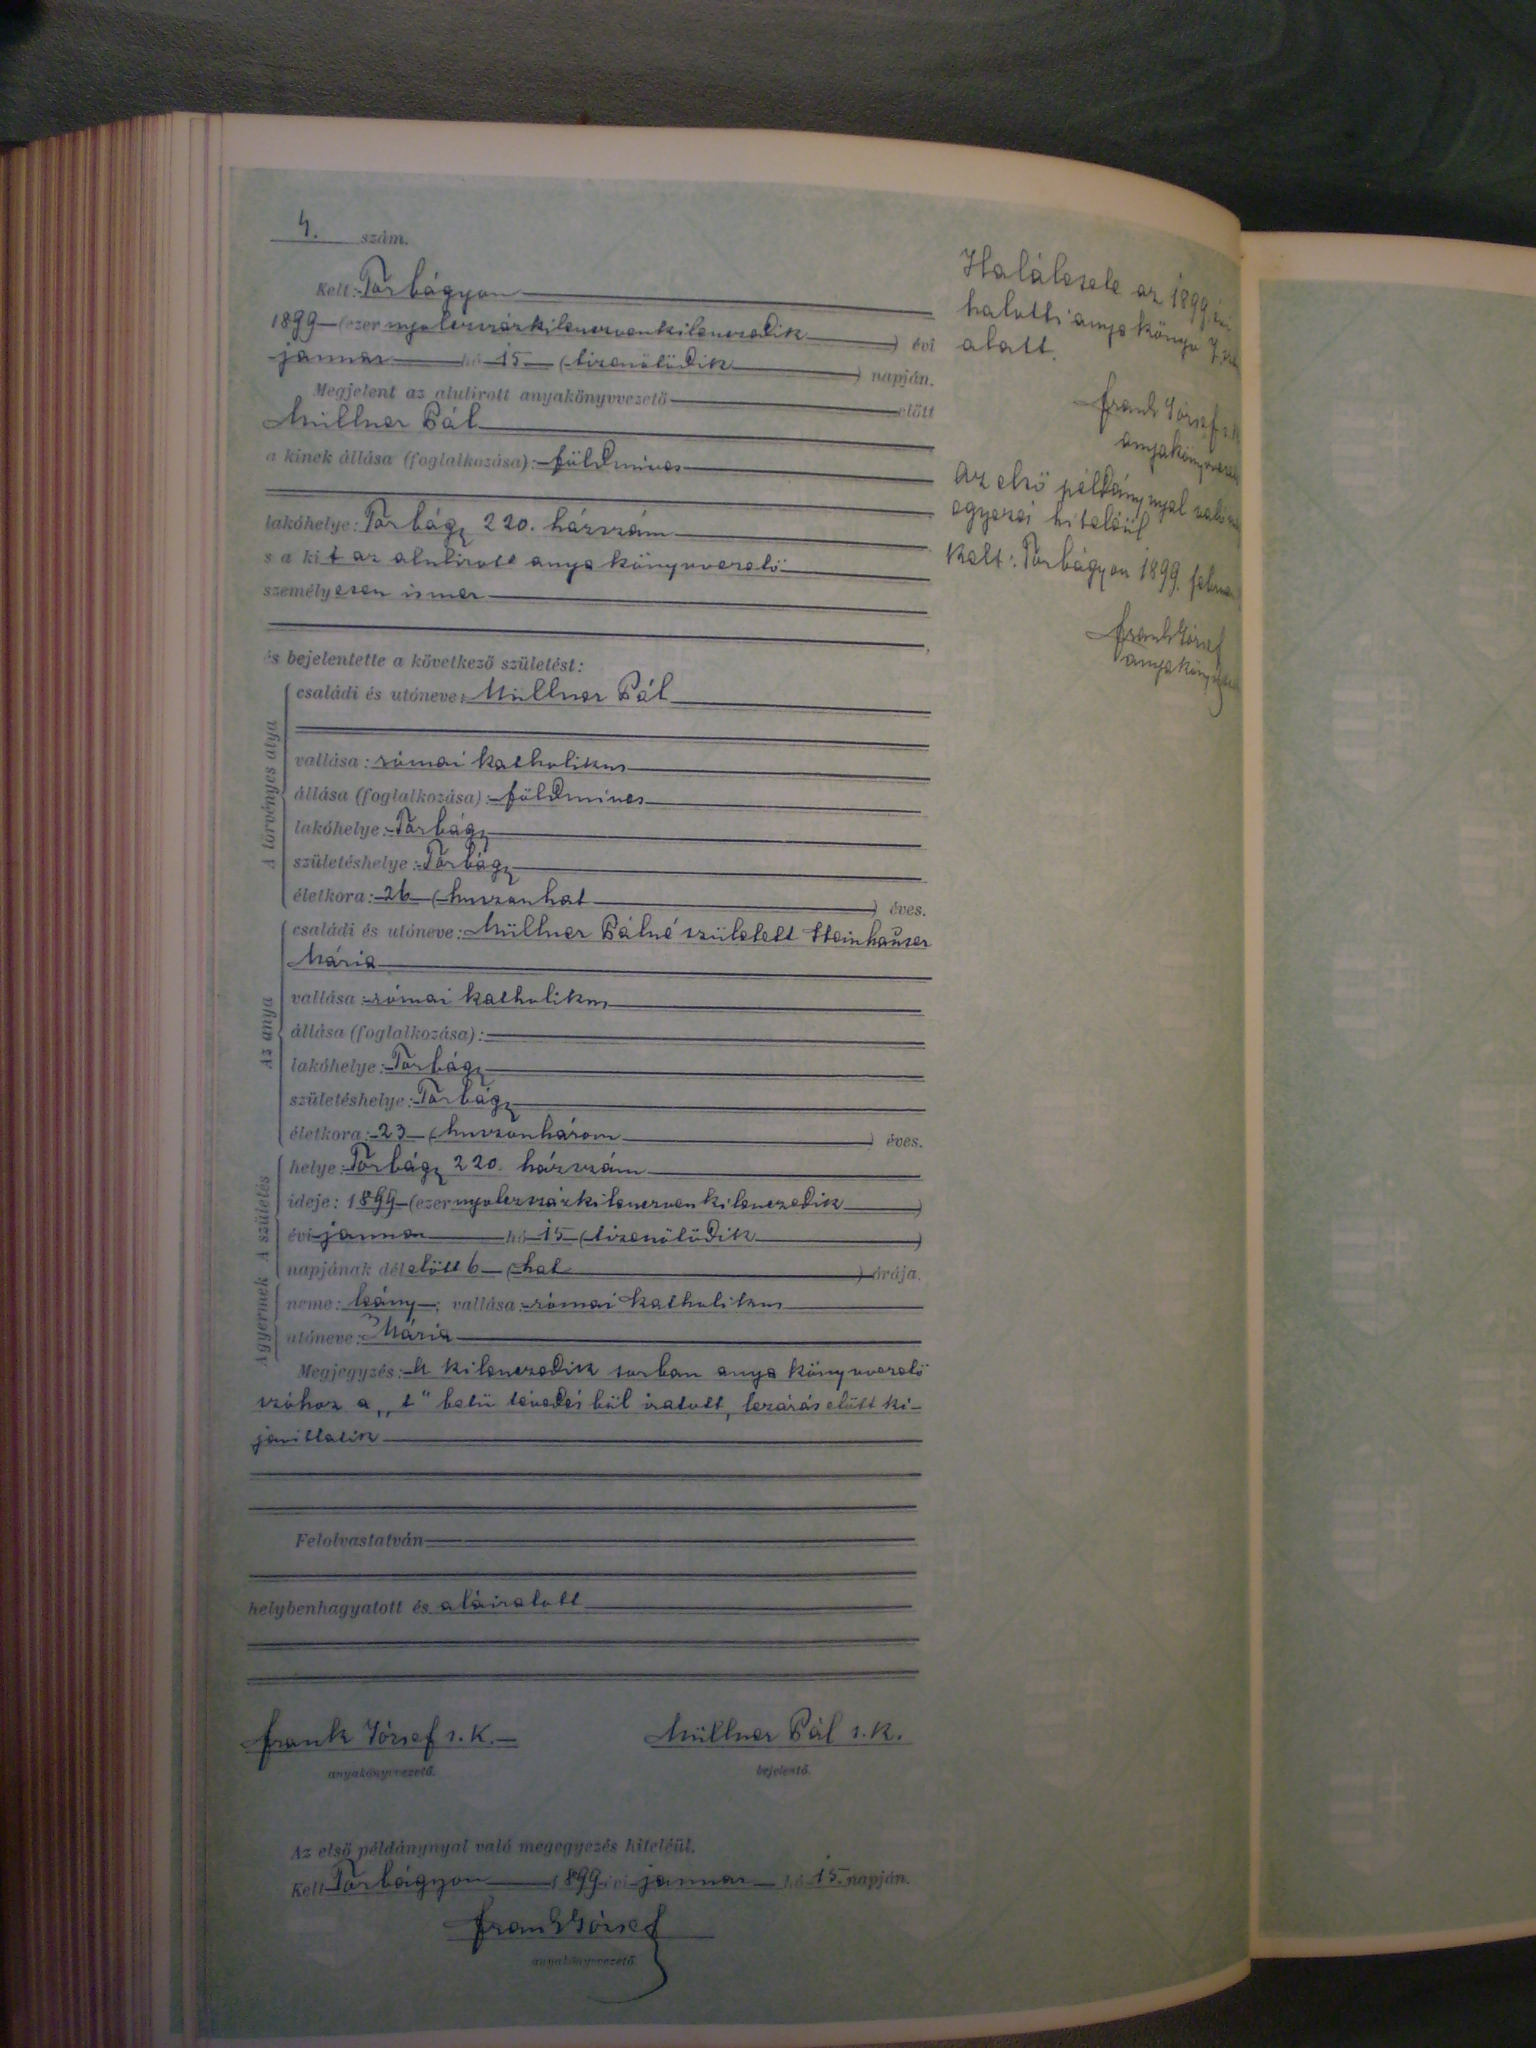 4. szám.
Kelt: Torbágyon
1899 (ezer nyolczszázkilenczvenkilenczedik) évi
január hó 15 (tizenötödik) napján.
Megjelent az alulirott anyakönyvvezető előtt
Müllner Pál
a kinek állása (foglalkozása): földmíves
lakóhelye: Torbágy 220. házszám
s a kit az alulirott anyakönyvvezető
személyesen ismer
és bejelentette a következő születést:
A törvényes atya
családi és utóneve: Müllner Pál
vallása: római katholikus
állása (foglalkozása): földmíves
lakóhelye: Torbágy
születéshelye: Torbágy
életkora: 26 (huszonhat) éves.
Az anya
családi és utóneve: Müllner Pálné született Steinhauser
Mária
vallása: római katholikus
állása (foglalkozása):
lakóhelye: Torbágy
születéshelye: Torbágy
életkora: 23 (huszonhárom) éves.
A születés
helye: Torbágy 220. házszám
ideje: 1899 (ezer nyolczszázkilenczvenkilenczedik)
évi január hó 15 (tizenötödik)
napjának délelőtt 6 (hat) órája.
A gyermek
neme: leány; vallása: római katholikus
utóneve: Mária
Megjegyzés: A kilenczedik sorban anyakönyvvezető
szóhoz a „t" betü tévedésből iratott, lezárás előtt ki-
javíttatik
Felolvastatván
helybenhagyatott és aláiratott
Frank József s. k. Müllner Pál s. k.
anyakönyvvezető. bejelentő.
Az első példánynyal való megegyezés hiteléül.
Kelt Torbágyon 1899 évi január hó 15. napján.
Frank József
anyakönyvvezető.
Halálesete az 1899 évi
halotti anyakönyv 7.
alatt.
Frank József s. k.
anyakönyvvezető
Az első példánynyal való
egyezés hiteléül
Kelt: Torbágyon 1899.
Frank József